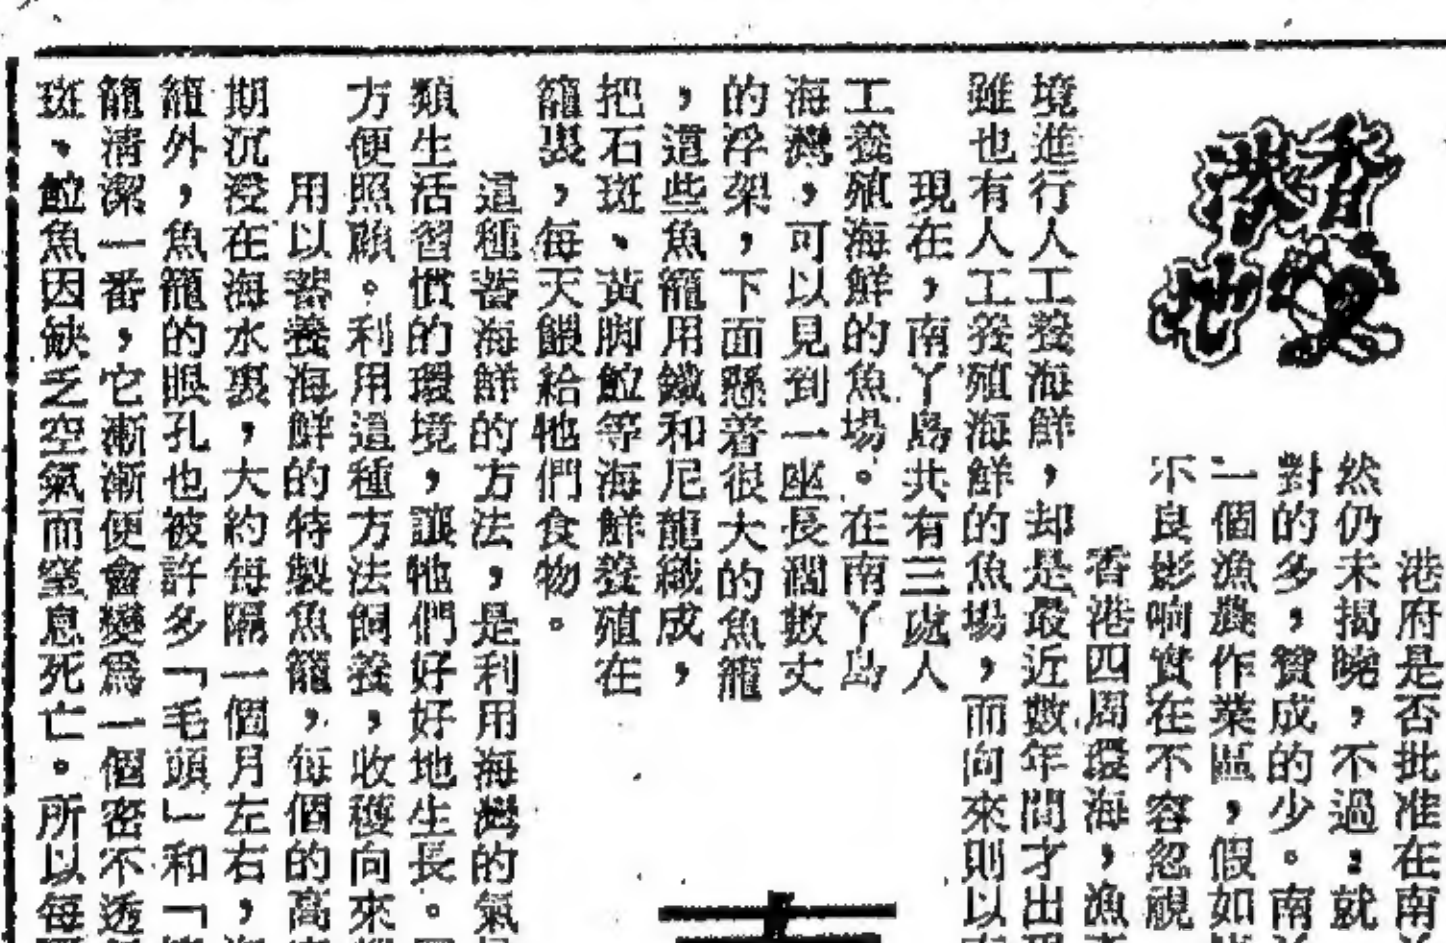 香港
地
港府是否批准在南
然仍未揭曉，不過：就
對的多，贊成的少。南
一個漁農作業區，假如
不良影响實在不容忽視
香港四周環海，漁
境進行人工養海鮮，却是最近數年間才出
雖也有人工養殖海鮮的魚場，而向來則以
現在，南丫島共有三處人
工養殖海鮮的魚場。在南丫島
海灣，可以見到一座長濶數丈
的浮架，下面懸着很大的魚籠
，這些魚籠用鐵和尼龍織成，
把石斑、黃脚䱽等海鮮養殖在
籠裏，每天餵給牠們食物。
這種蓄海鮮的方法，是利用海灣的氣
類生活習慣的環境，讓牠們好好地生長。
方便照顧。利用這種方法飼養，收穫向來
用以蓄養海鮮的特製魚籠，每個的高
期沉浸在海水裏，大約每隔一個月左右，
籠外，魚籠的眼孔也被許多「毛頭」和「
籠清潔一番，它漸漸便會變爲一個密不透
斑、䱽魚因缺乏空氣而窒息死亡。所以每